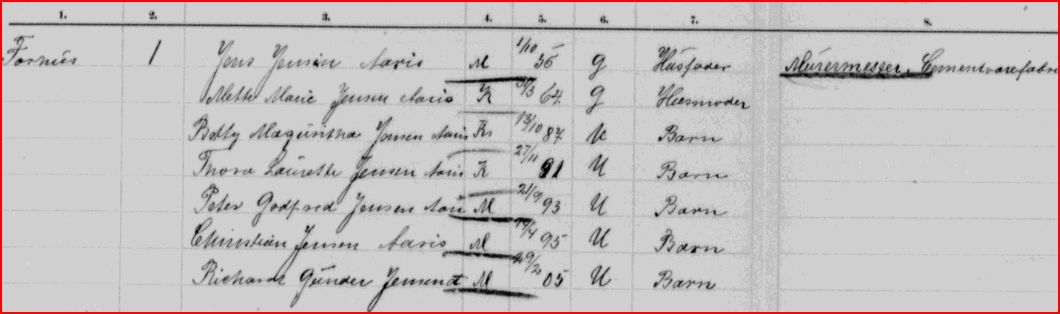 1. 2. 3. 4. 5. 6. 7. 8.
Fornæs 1 Jens Jensen Aaris M 1/10 56 G Husfader Murermester, Cementvarefabri
Mette Marie Jensen Aaris K /3 64 G Husmoder
Betty Jensen Aaris K 13/10 87 U Barn
Thora Laurette Jensen Aaris K 27/11 91 U Barn
Peter Godfred Jensen Aari M 21/9 93 U Barn
Christian Jensen Aaris M /4 95 U Barn
Richard Gunder Jensen M 29/2 05 U Barn